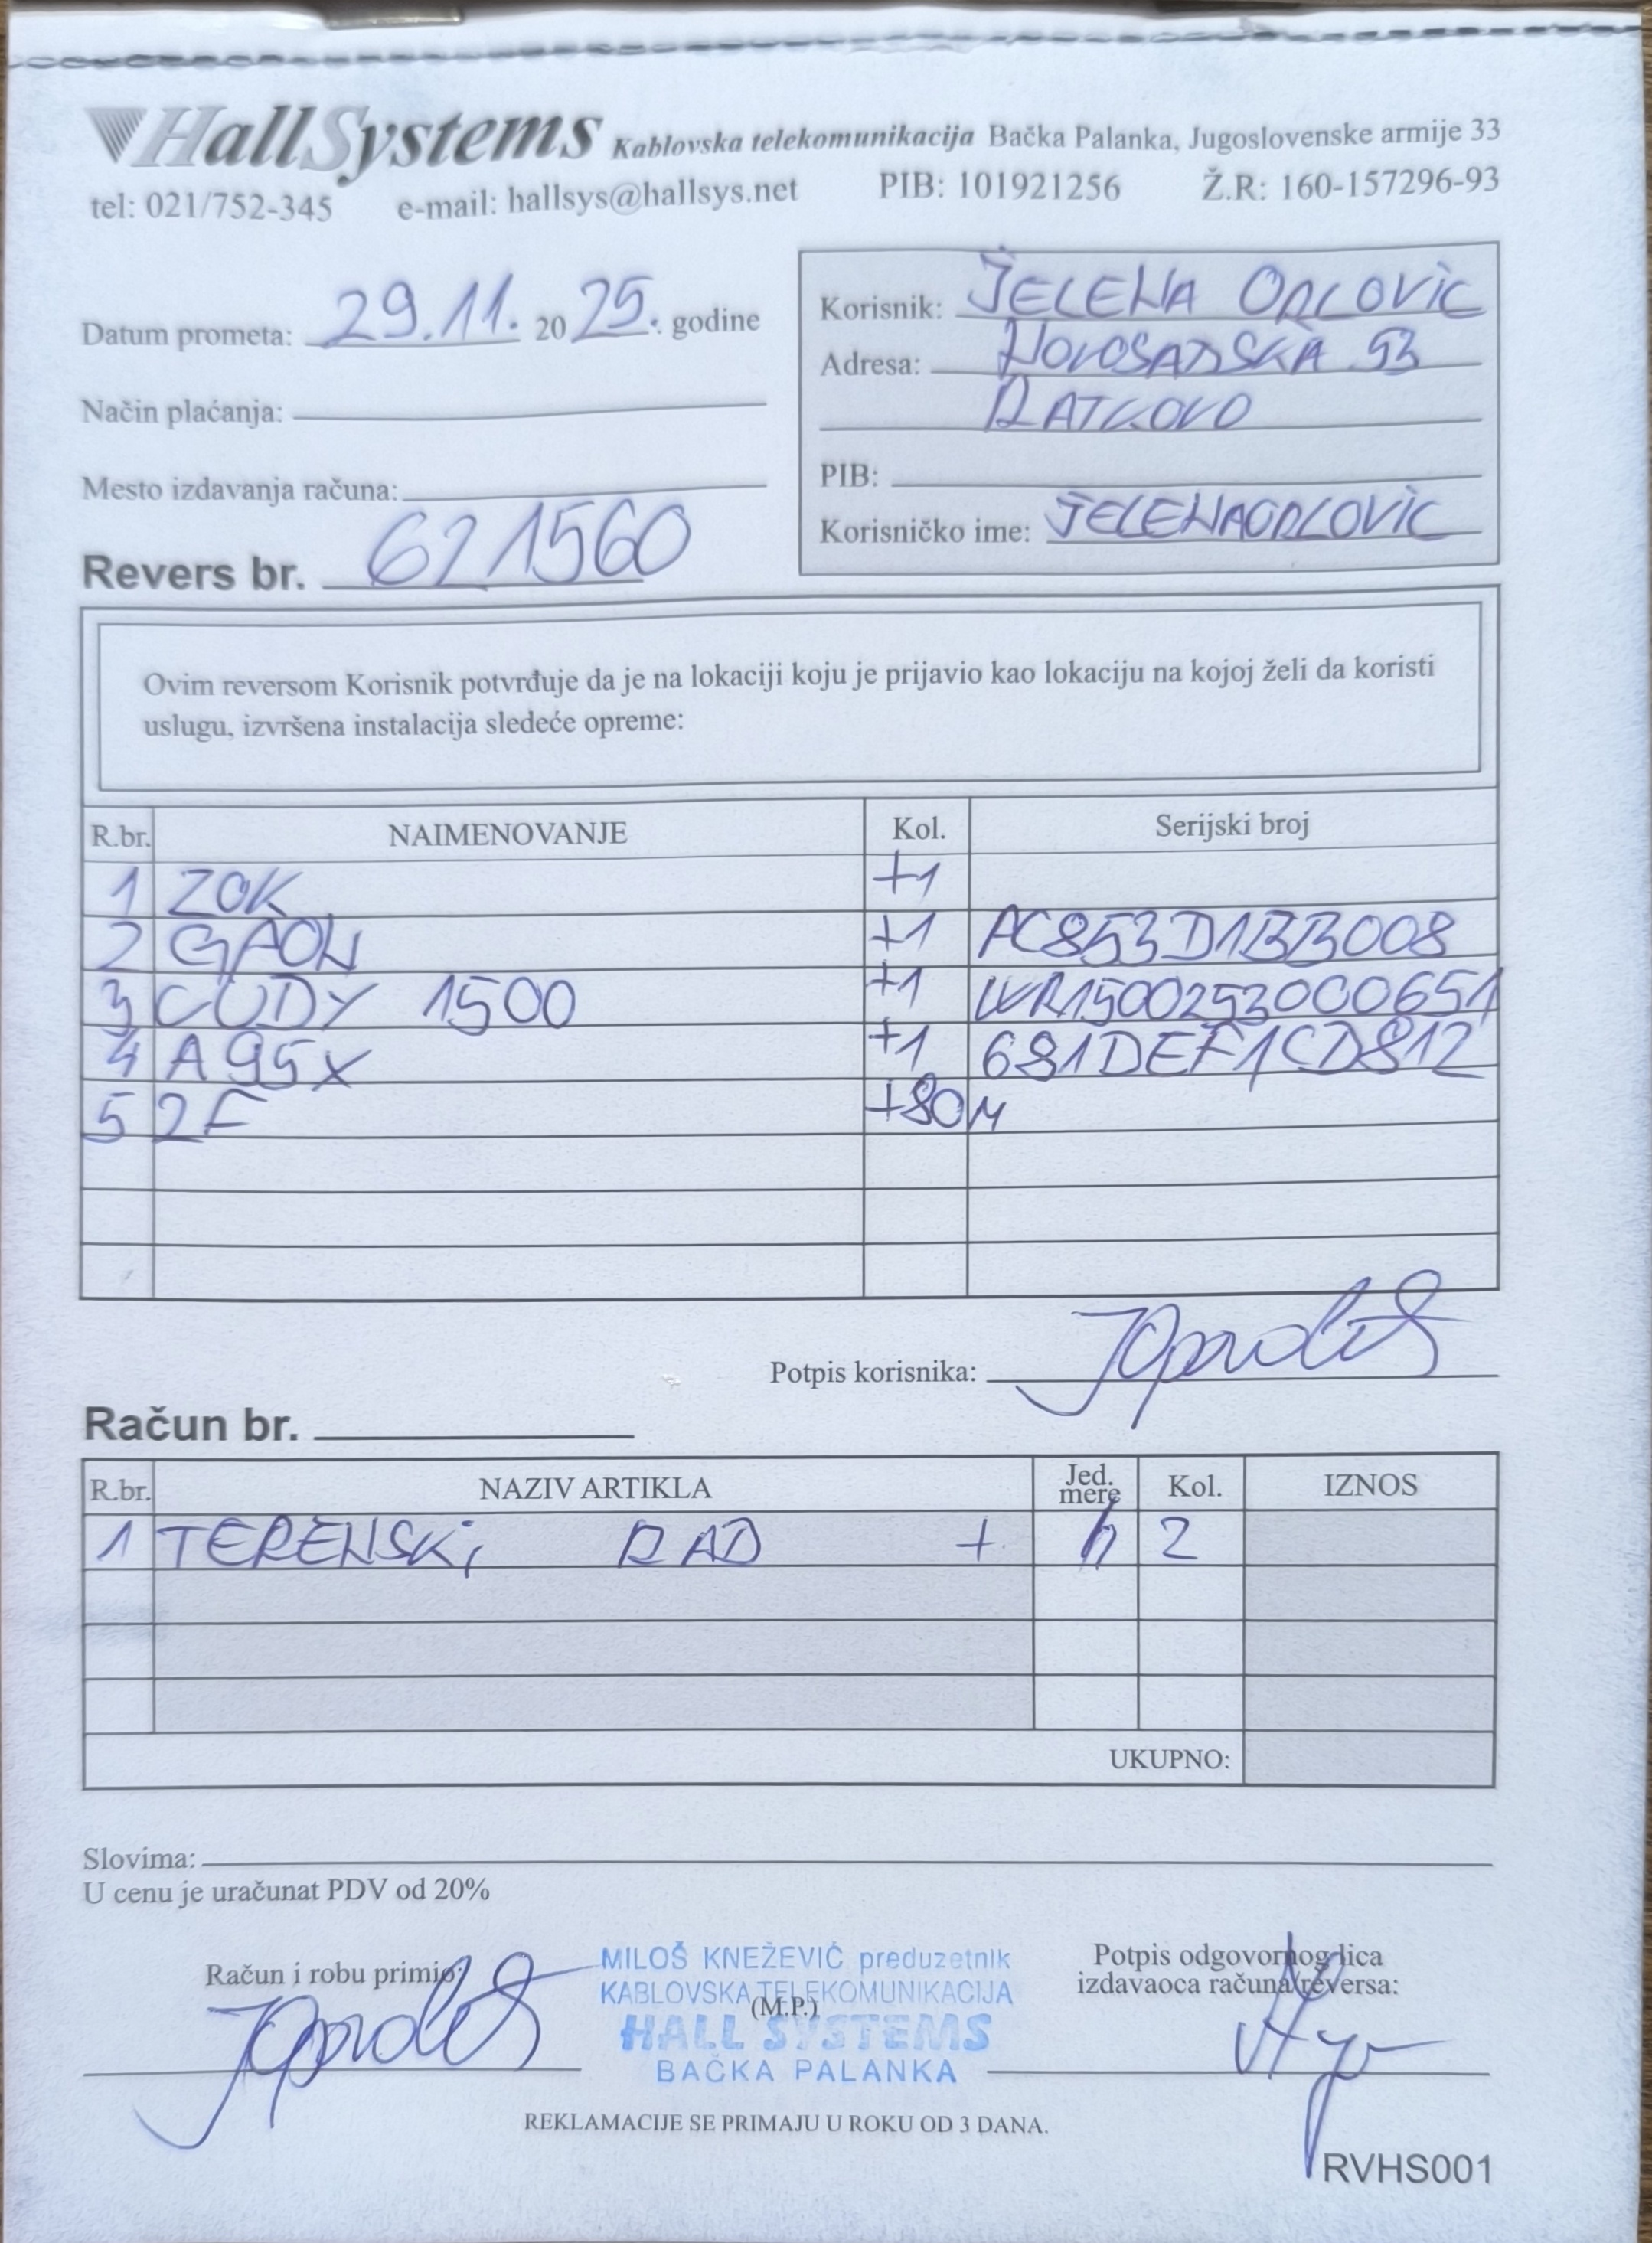 HallSystems Kablovska telekomunikacija Bačka Palanka, Jugoslovenske armije 33
tel: 021/752-345 e-mail: hallsys@hallsys.net PIB: 101921256 Ž.R: 160-157296-93
Datum prometa: 29.11. 2025. godine
Način plaćanja:
Mesto izdavanja računa:
Revers br. 621560
Korisnik: JELENA ORLOVIC
Adresa: NOVOSADSKA 53
RATKOVO
PIB:
Korisničko ime: JELENAORLOVIC
Ovim reversom Korisnik potvrđuje da je na lokaciji koju je prijavio kao lokaciju na kojoj želi da koristi
uslugu, izvršena instalacija sledeće opreme:
R.br. NAIMENOVANJE Kol. Serijski broj
1 ZOK +1
2 GPON +1 AC853D1BB008
3 CUDY 1500 +1 WR1500253000651
4 A95X +1 681DEF1CD812
5 2F +80M
Potpis korisnika:
Račun br.
R.br. NAZIV ARTIKLA Jed. mere Kol. IZNOS
1 TERENSKI RAD + h 2
UKUPNO:
Slovima:
U cenu je uračunat PDV od 20%
Račun i robu primio:
MILOŠ KNEŽEVIĆ preduzetnik
KABLOVSKA TELEKOMUNIKACIJA
(M.P.)
HALL SYSTEMS
BAČKA PALANKA
Potpis odgovornog lica
izdavaoca računa/reversa:
REKLAMACIJE SE PRIMAJU U ROKU OD 3 DANA.
RVHS001